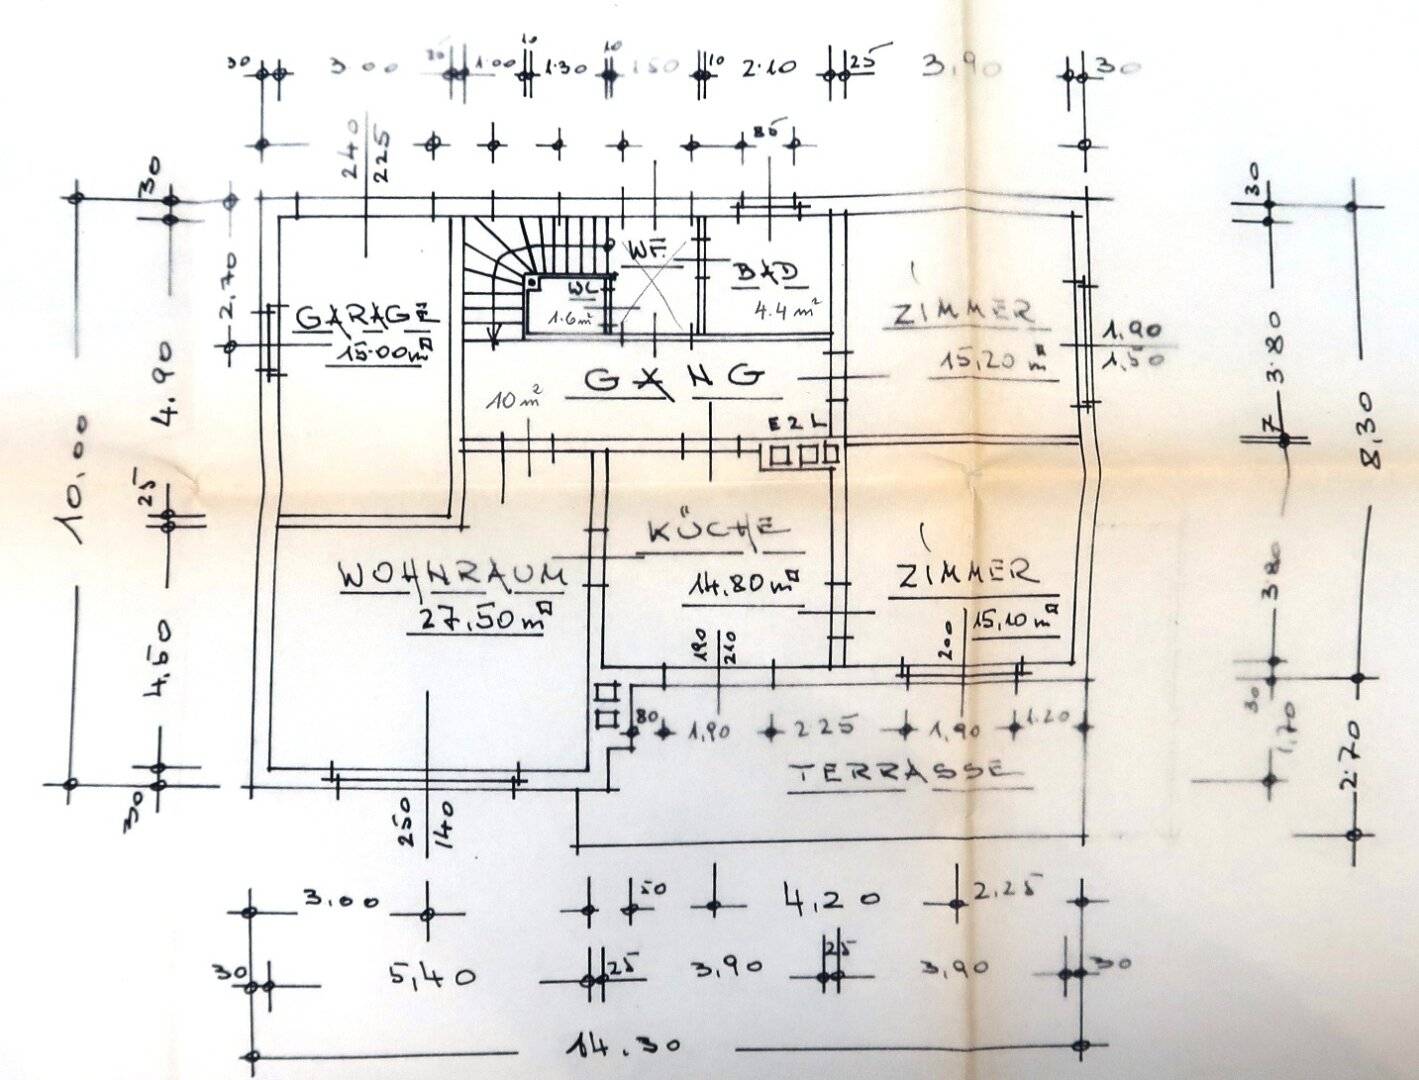 30 3.00 25 1.00 10 1.30 10 1.50 10 2.10 25 3.90 30
85
240
225
30
30
2.70
10.00
4.90
25
4.50
30
WF.
BAD
4.4 m²
WC
1.6 m²
GARAGE
15.00 m²
ZIMMER
15,20 m²
1,90
1,50
GANG
10 m²
E Z L
3.80
7
8,30
3.80
30
1,70
2.70
KÜCHE
14,80 m²
WOHNRAUM
27,50 m²
ZIMMER
15,10 m²
190
210
200
80 1,90 2.25 1,90 1.20
TERRASSE
250
140
3,00 50 4,20 2.25
30 5,40 25 3,90 25 3,90 30
14.30